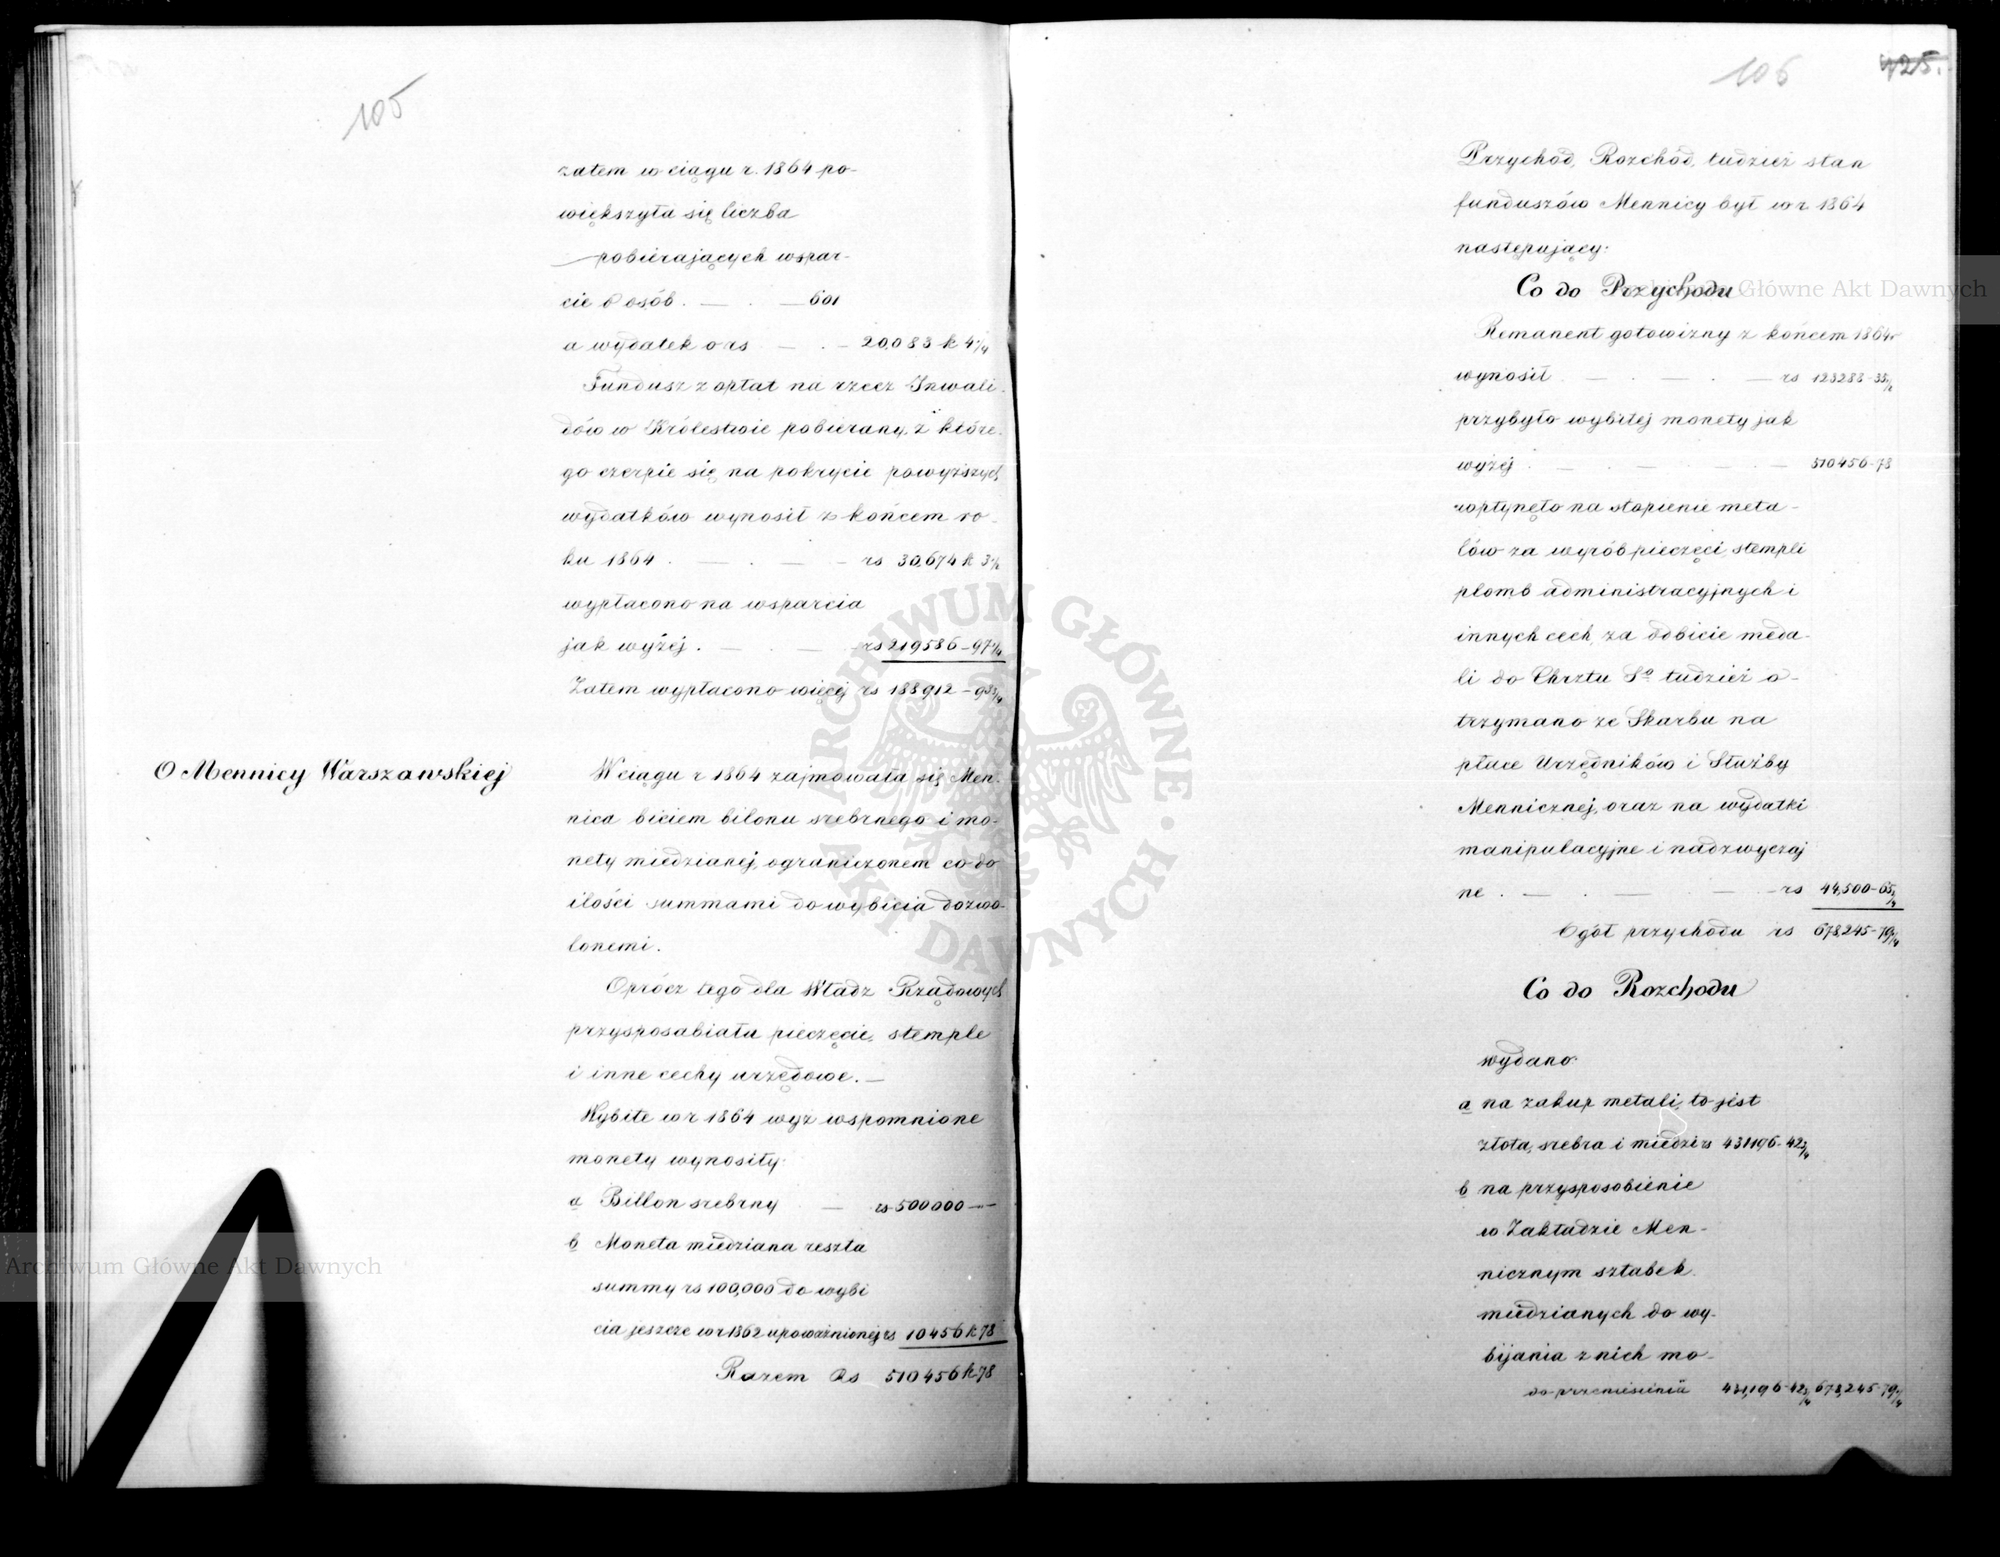 105
zatem w ciągu r. 1864 po-
większyła się liczba
pobierających wspar-
cie o osób . — . — 601
a wydatek o rs — . — 20,083 k 4 1/4
Fundusz z opłat na rzecz Inwali-
dów w Królestwie pobierany, z które-
go czerpie się na pokrycie powyższych
wydatków wynosił z końcem ro-
ku 1864 . — . — rs 30,674 k 3 1/2
wypłacono na wsparcia
jak wyżej . — . — rs 219586-97 1/4
Zatem wypłacono więcej rs 188912-93 3/4
O Mennicy Warszawskiej
W ciągu r 1864 zajmowała się Men-
nica biciem bilonu srebrnego i mo-
nety miedzianej, ograniczonem co do
ilości summami do wybicia dozwo-
lonemi.
Oprócz tego dla Władz Rządowych
przysposabiała pieczęcie, stemple
i inne cechy urzędowe. —
Wybite w r 1864 wyż wspomnione
monety wynosiły:
a Billon srebrny — rs 500000 —
b Moneta miedziana reszta
summy rs 100,000 do wybi
cia jeszcze w r 1862 upoważnionej rs 10456 k 78
Razem Rs 510456 k 78
106
425.
Przychód, Rozchód, tudzież stan
funduszów Mennicy był w r 1864
następujący:
Co do Przychodu
Remanent gotowizny z końcem 1864 r
wynosił — . — . — rs 123288-35 1/2
przybyło wybitej monety jak
wyżej . — . — . — 510456-78
wpłynęło na stopienie meta-
lów za wyrób pieczęci, stempli
plomb administracyjnych i
innych cech, za odbicie meda-
li do Chrztu Sgo tudzież o-
trzymano ze Skarbu na
płace Urzędników i Służby
Mennicznej, oraz na wydatki
manipulacyjne i nadzwyczaj
ne . — . — . — rs 44,500-65 3/4
Ogół przychodu rs 678,245-79 1/4
Co do Rozchodu
wydano:
a na zakup metali, to jest
złota, srebra i miedzi rs 431196-42 3/4
b na przysposobienie
w Zakładzie Men-
nicznym sztabek
miedzianych do wy-
bijania z nich mo-
do przeniesienia 431,196-42 3/4 678,245-79 1/4
ARCHIWUM GŁÓWNE AKT DAWNYCH
Archiwum Główne Akt Dawnych
Archiwum Główne Akt Dawnych